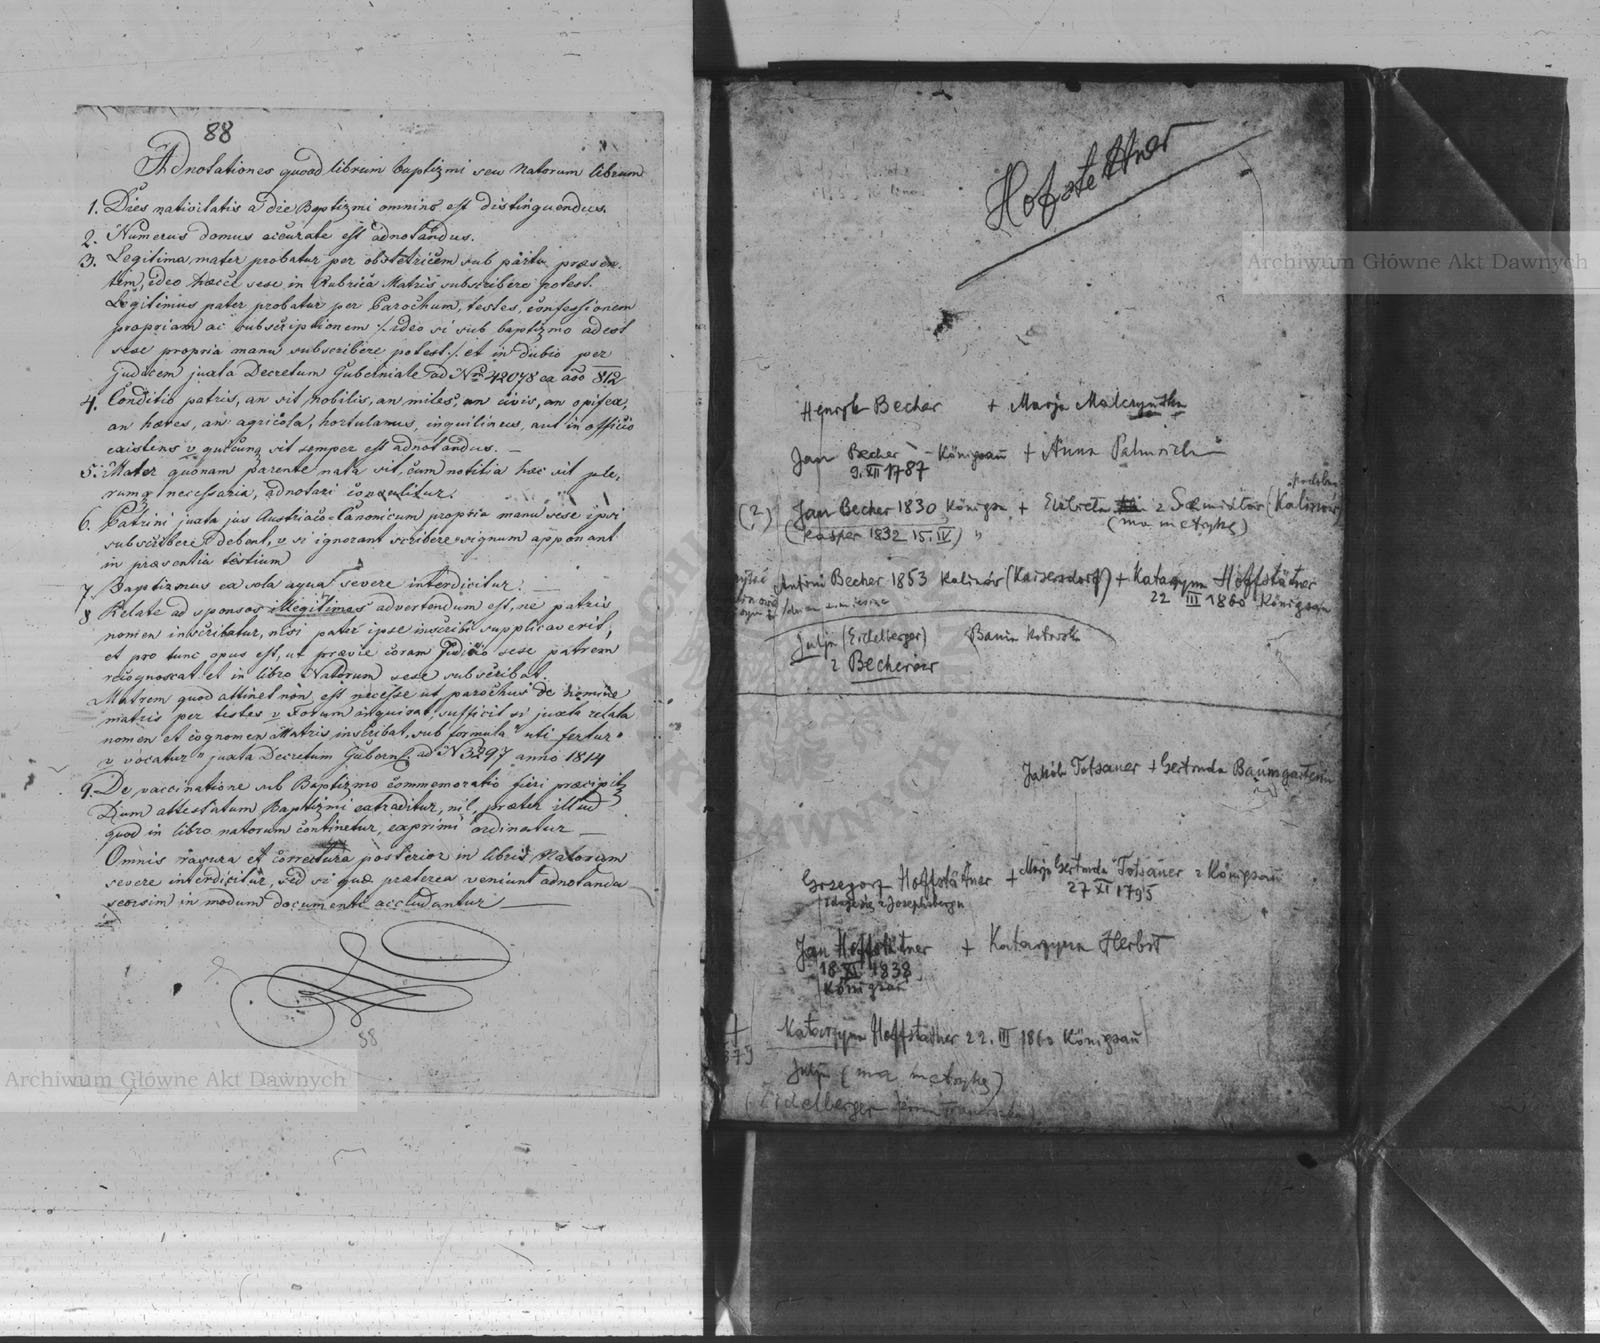 88
Adnotationes quoad librum baptizmi seu Natorum librum
1. Dies nativitatis a die Baptizmi omnino est distinguendus.
2. Numerus domus accurate est adnotandus.
3. Legitima mater probatur per obstetricem sub partu præsen-
tem, ideo hæcce sese in Rubrica Matris subscribere potest.
Legitimus pater probatur per Parochum, testes, confessionem
propriam ac subscriptionem /: ideo si sub baptizmo adest
sese propria manu subscribere potest :/ et in dubio per
judicem juxta Decretum Guberniale ad Nrm 42078 ex aõo 812
4. Conditio patris, an sit nobilis, an miles, an civis, an opifex,
an hætes, an agricola, hortulanus, inquilinus, aut in officio
existens v quicunq sit semper est adnotandus. —
5. Mater quonam parente nata sit, cum notitia hæc sit ple-
rumq necessaria, adnotari consulitur.
6. Patrini juxta jus Austriaco-Canonicum propria manu sese ipsi
subscribere debent, v si ignorant scribere signum apponant
in præsentia testium
7. Baptizmus ex sola aqua severe interdicitur. —
8 Relate ad sponsos illegitimos advertendum est, ne patris
nomen inscribatur, nisi pater ipse inscribi supplicaverit,
et pro tunc opus est, ut prævie coram Judicio sese patrem
recognoscat et in libro Natorum sese subscribat.
Matrem quod attinet non est necesse ut parochus de nomine
matris per testes v Forum inquirat, sufficit si juxta relata
nomen et cognomen Matris inscribat, sub formula "uti fertur"
v vocatur" juxta Decretum Gubern. ad N 3297 anno 1814
9. De vaccinatione sub Baptizmo commemoratio fieri præcipitr
Dum attestatum Baptizmi extraditur, nil præter illud
quod in libro natorum continetur, exprimi ordinatur —
Omnis rasura et correctura posterior in libris Natorum
severe interdicitur, sed si quæ præterea veniunt adnotanda
seorsim in modum documenti accludantur —
88
Hofstettner
Henryk Becher + Marja Malczyńska
Jan Becher - Königsau + Anna Palmrich
9. XII 1787
(2) Jan Becher 1830 Königsau + Elżbieta z (Kalinów)
(Kasper 1832 15. IV) " (ma metrykę)
Antoni Becher 1853 Kalinów (Kaisersdorf) + Katarzyna Hoffstätner
22 III 1860 Königsau
Julja (Eidelberger)
z Becherów
Jakób Totsauer + Gertruda Baumgarten
Grzegorz Hoffstätner + Marja Gertruda Totsauer z Königsau
27 XI 1795
Jan Hoffstätner + Katarzyna Herbst
18 XI 1838
Königsau
+ Katarzyna Hoffstätner 22. III 1860 Königsau
Julja (ma metrykę)
(Eidelberger
Archiwum Główne Akt Dawnych
Archiwum Główne Akt Dawnych